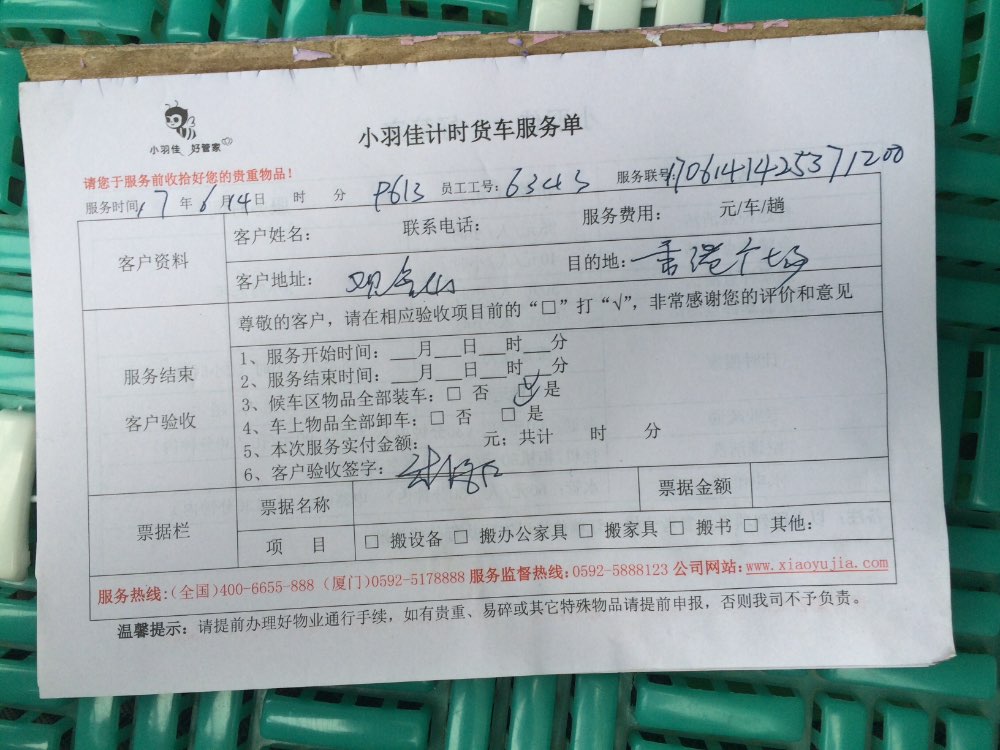 小羽佳 好管家
小羽佳计时货车服务单
请您于服务前收拾好您的贵重物品！
服务时间：17 年 6 月 14 日 时 分 P613 员工工号：6343 服务联号 1706141425371200
客户资料
客户姓名： 联系电话： 服务费用： 元/车/趟
客户地址：观音山 目的地：香港广场
服务结束
客户验收
尊敬的客户，请在相应验收项目前的“□”打“√”，非常感谢您的评价和意见
1、服务开始时间：___月___日___时___分
2、服务结束时间：___月___日___时___分
3、候车区物品全部装车：□ 否 ☑ 是
4、车上物品全部卸车：□ 否 □ 是
5、本次服务实付金额： 元；共计 时 分
6、客户验收签字：
票据栏
票据名称 票据金额
项 目 □ 搬设备 □ 搬办公家具 □ 搬家具 □ 搬书 □ 其他：
服务热线：（全国）400-6655-888（厦门）0592-5178888 服务监督热线：0592-5888123 公司网站：www.xiaoyujia.com
温馨提示：请提前办理好物业通行手续，如有贵重、易碎或其它特殊物品请提前申报，否则我司不予负责。